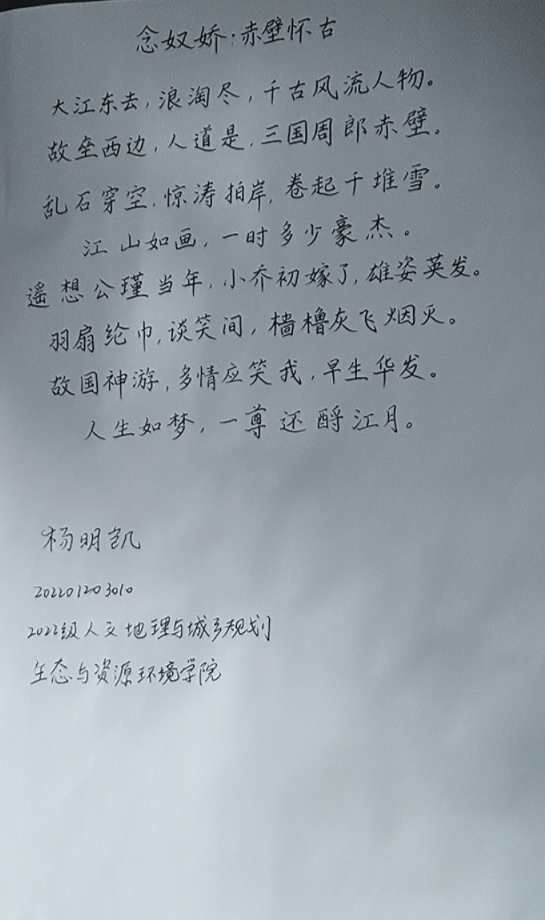 念奴娇:赤壁怀古
大江东去,浪淘尽,千古风流人物。
故垒西边,人道是,三国周郎赤壁。
乱石穿空,惊涛拍岸,卷起千堆雪。
江山如画,一时多少豪杰。
遥想公瑾当年,小乔初嫁了,雄姿英发。
羽扇纶巾,谈笑间,樯橹灰飞烟灭。
故国神游,多情应笑我,早生华发。
人生如梦,一尊还酹江月。
杨明凯
202201203010
2022级人文地理与城乡规划
生态与资源环境学院